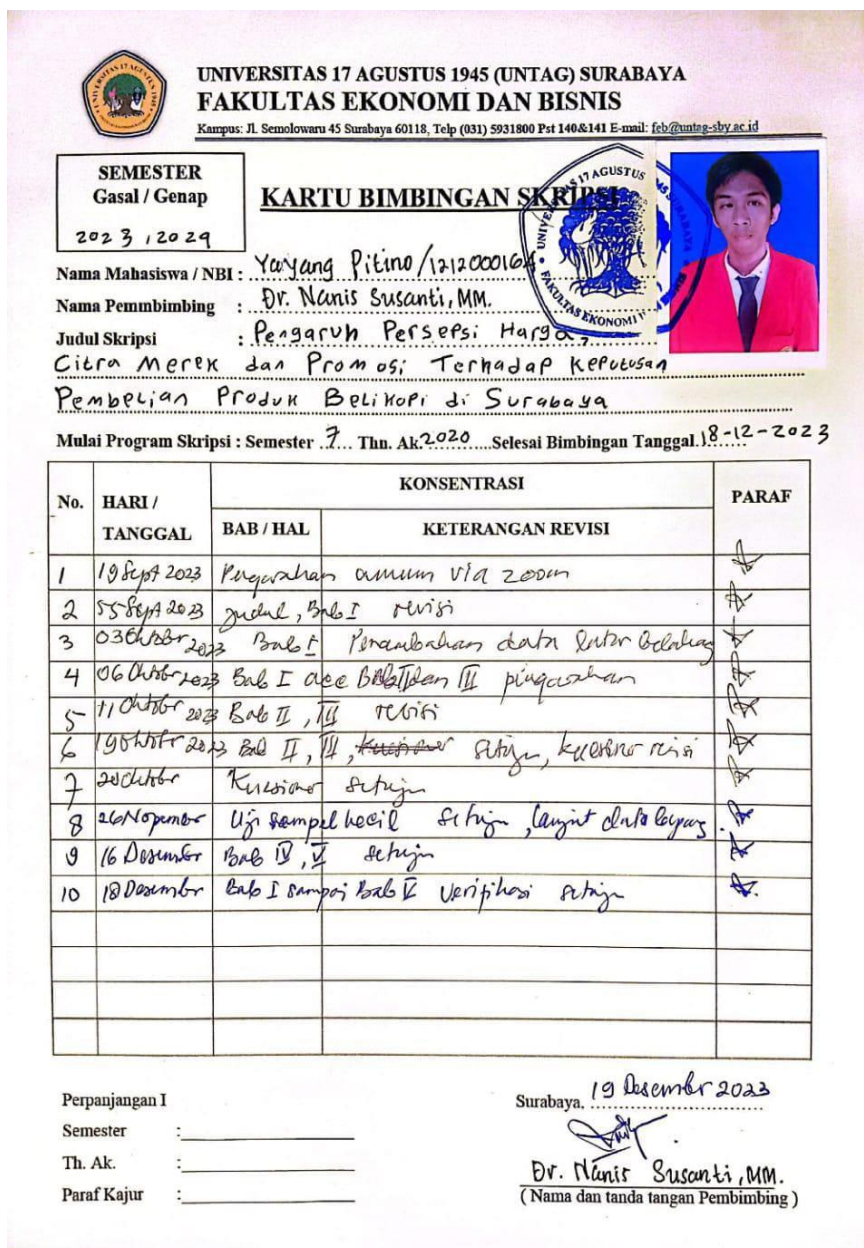 UNIVERSITAS 17 AGUSTUS 1945 (UNTAG) SURABAYA
FAKULTAS EKONOMI DAN BISNIS
Kampus: Jl. Semolowaru 45 Surabaya 60118, Telp (031) 5931800 Pst 140&141 E-mail: feb@untag-sby.ac.id
SEMESTER
Gasal / Genap
2023 / 2024
KARTU BIMBINGAN SKRIPSI
UNIVERSITAS 17 AGUSTUS 45 SURABAYA
FAKULTAS EKONOMI
Nama Mahasiswa / NBI : Yayang Pitino /
Nama Pemmbimbing : Dr. Nanis Susanti, MM.
Judul Skripsi : Pengaruh Persepsi Harga,
Citra Merek dan Promosi Terhadap Keputusan
Pembelian Produk Belikopi di Surabaya
Mulai Program Skripsi : Semester 7 Thn. Ak. 2020 Selesai Bimbingan Tanggal 18-12-2023
No. HARI / TANGGAL KONSENTRASI PARAF
BAB / HAL KETERANGAN REVISI
1 19 Sept 2023 Pengarahan umum via zoom
2 Sept 2023 judul, Bab I revisi
3 03 Oktober 2023 Bab I Penambahan data latar belakang
4 06 Oktober 2023 Bab I acc Bab II dan III pengarahan
5 11 Oktober 2023 Bab II, III revisi
6 19 Oktober 2023 Bab II, III, setuju, revisi
7 20 Oktober Kuesioner setuju
8 26 Nopember Uji sampel kecil setuju, lanjut data
9 16 Desember Bab IV, V setuju
10 18 Desember Bab I sampai Bab V verifikasi setuju
Perpanjangan I
Semester :
Th. Ak. :
Paraf Kajur :
Surabaya, 19 Desember 2023
Dr. Nanis Susanti, MM.
( Nama dan tanda tangan Pembimbing )